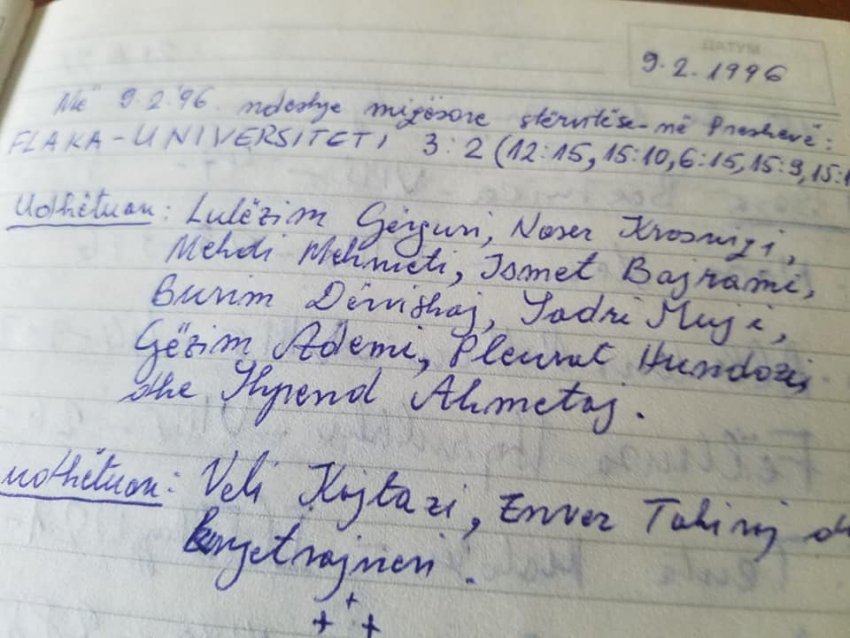 ДАТУМ
9.2.1996
Më 9.2.'96. ndeshje miqësore stërvitëse në Preshevë:
FLAKA-UNIVERSITETI 3:2 (12:15, 15:10, 6:15, 15:9, 15:1
Udhëtuan: Lulëzim Gërguri, Naser Krasniqi,
Mehdi Mehmeti, Ismet Bajrami,
Burim Dërvishaj, Sadri Muji,
Gëzim Ademi, Pleurat Hundozi,
dhe Shpend Ahmetaj.
udhëtuan: Veli Kajtazi, Enver Tahiraj
kryetrajneri.
+ + +